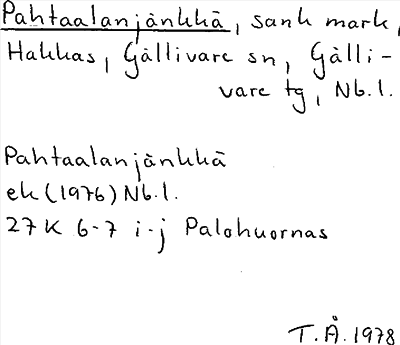 Pahtaalanjänkkä, sank mark,
Hakkas, Gällivare sn, Gälli-
vare tg, Nb.l.
Pahtaalanjänkkä
ek (1976) Nb.l.
27K 6-7 i-j Palohuornas
T.Å. 1978